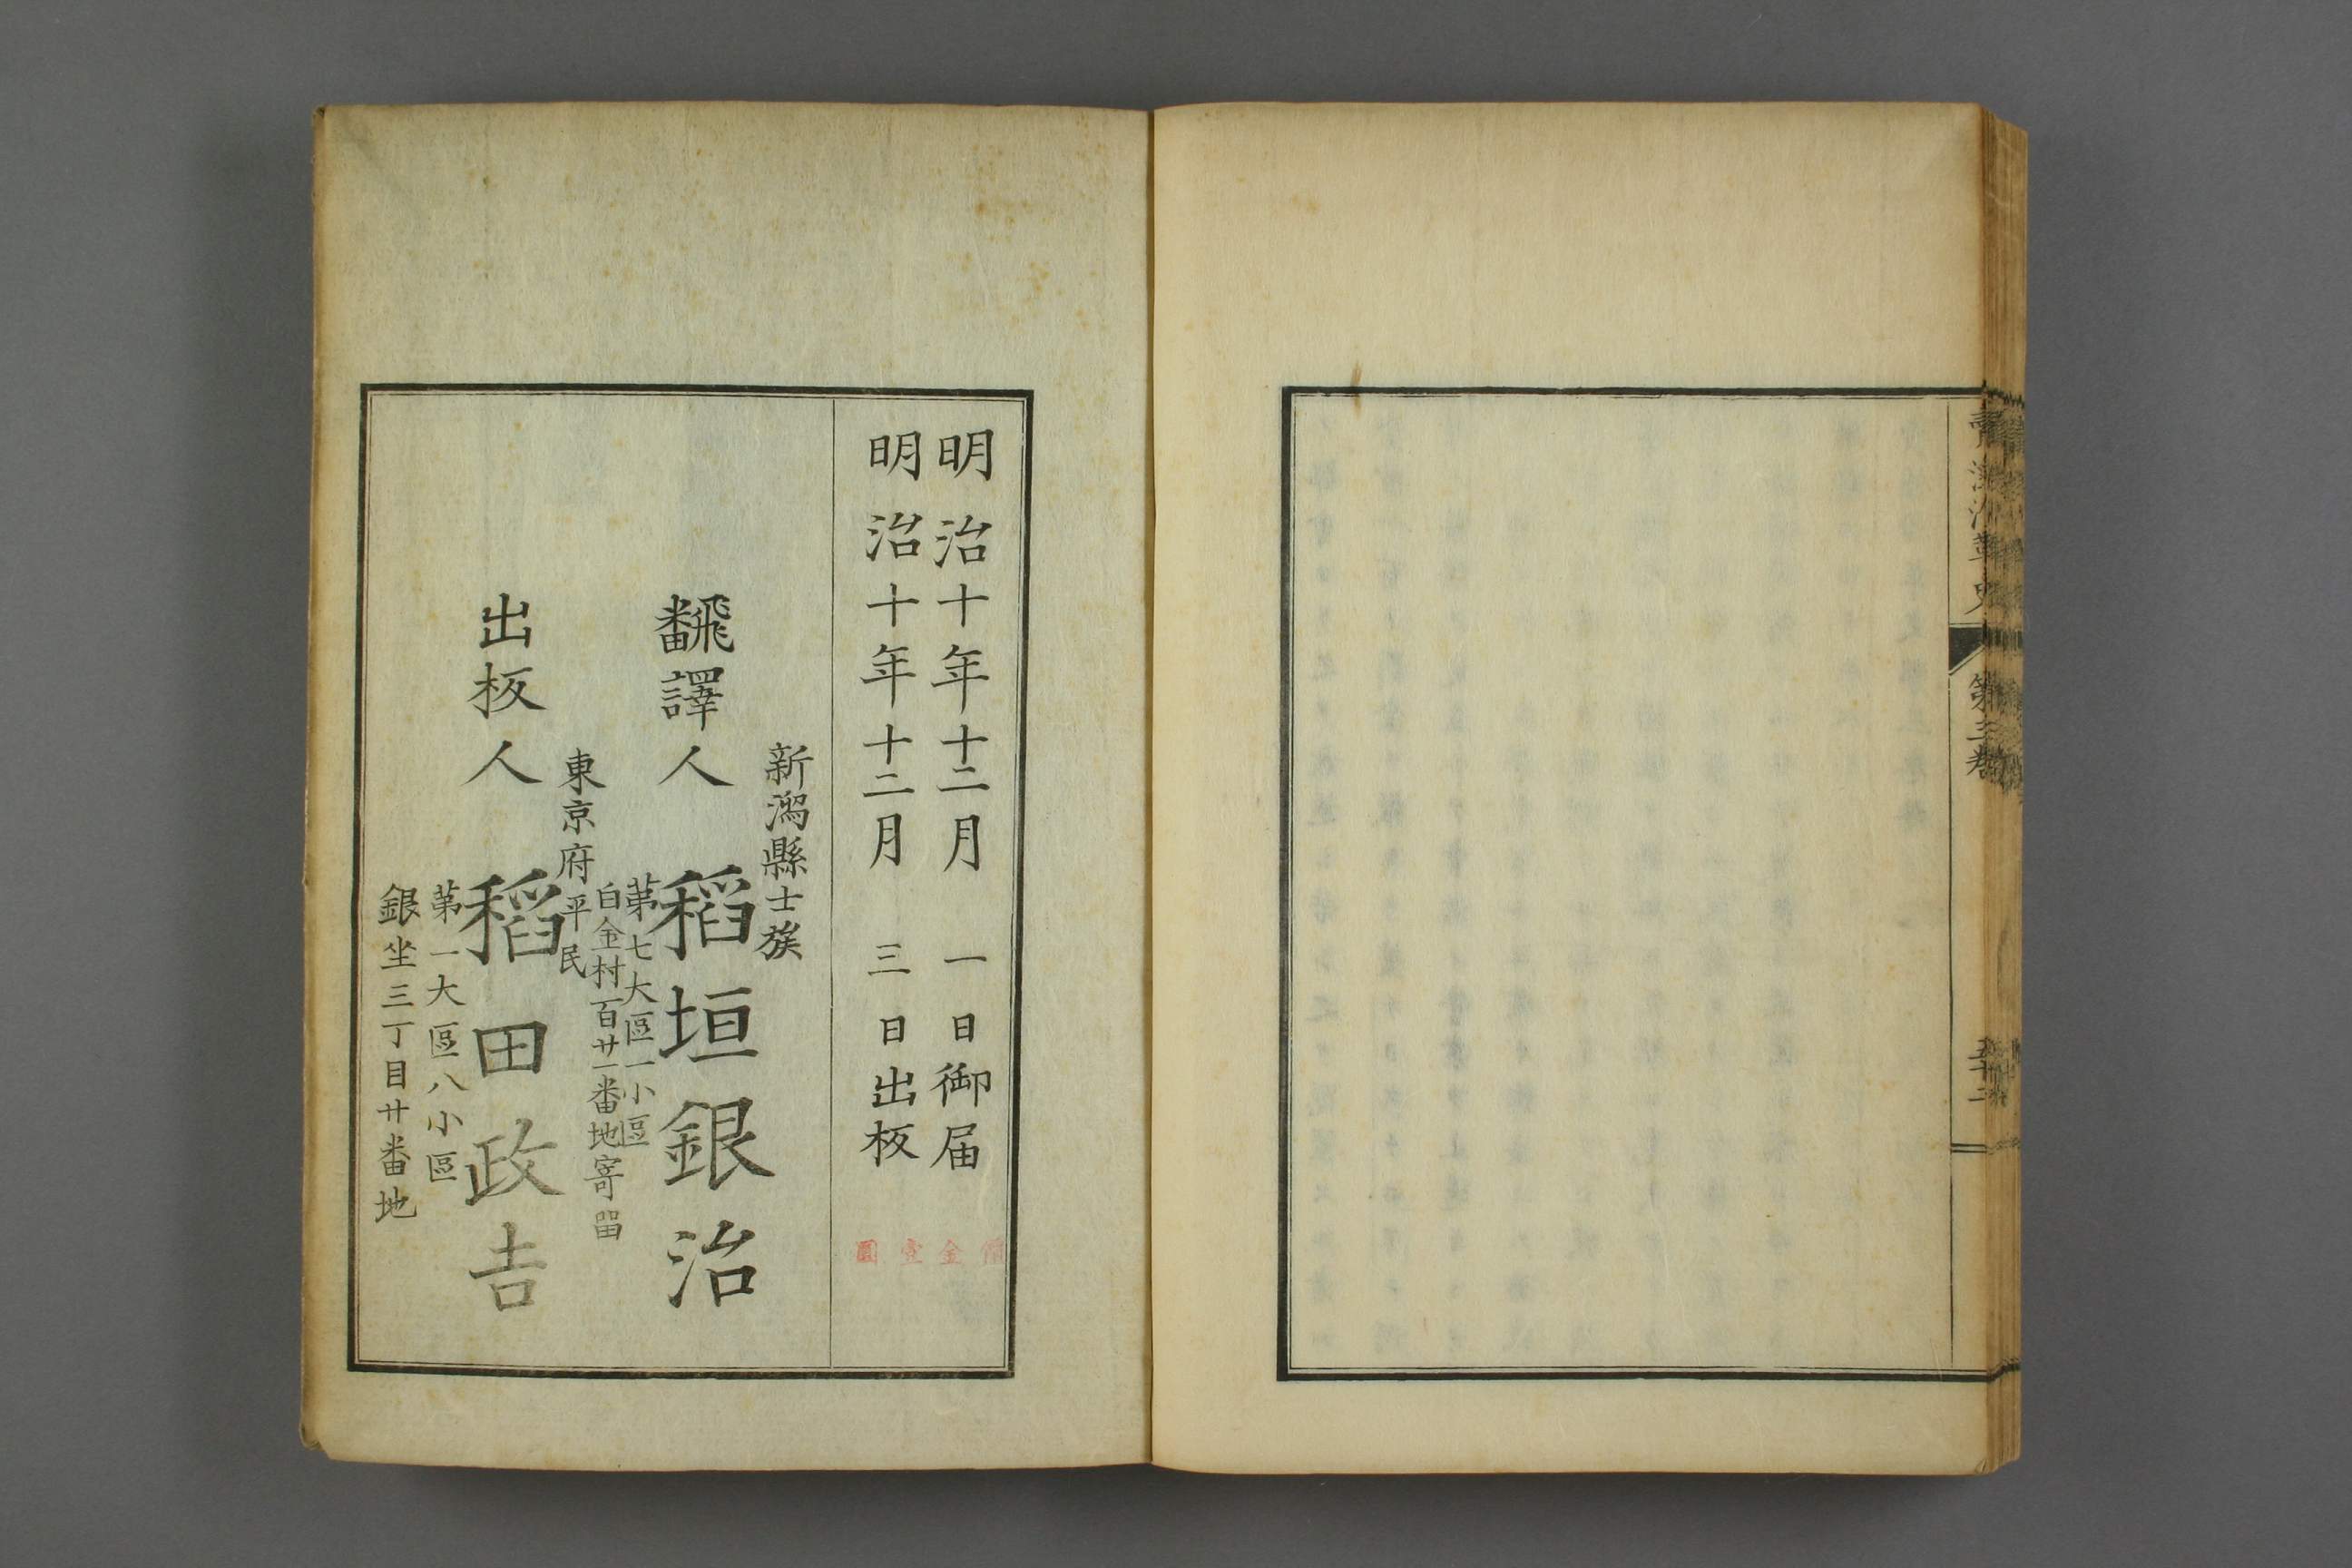 賣淫沿革史
第三卷
五十二
明治十年十二月 一日御届
明治十年十二月 三日出板
價金壹圓
新潟縣士族
飜譯人 稻垣銀治
第七大區一小區
白金村百廿一番地寄畱
東京府平民
出板人 稻田政吉
第一大區八小區
銀坐三丁目廿番地